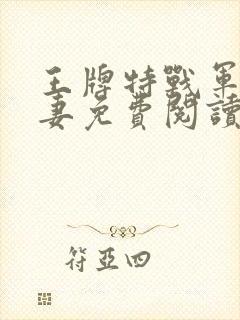 王牌特戰軍
妻免費閱讀
符亞四